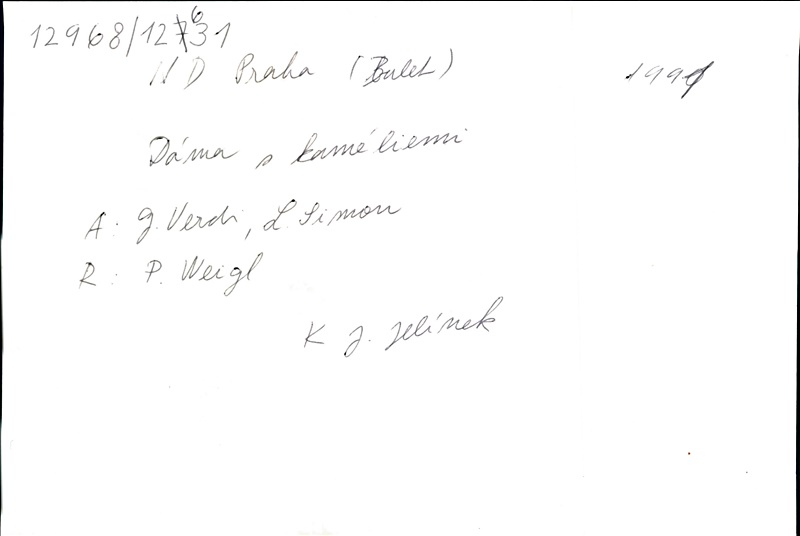 12968/12631
ND Praha (Balet) 1991
Dáma s kaméliemi
A: G. Verdi, L. Simon
R: P. Weigl
K J. Jelínek